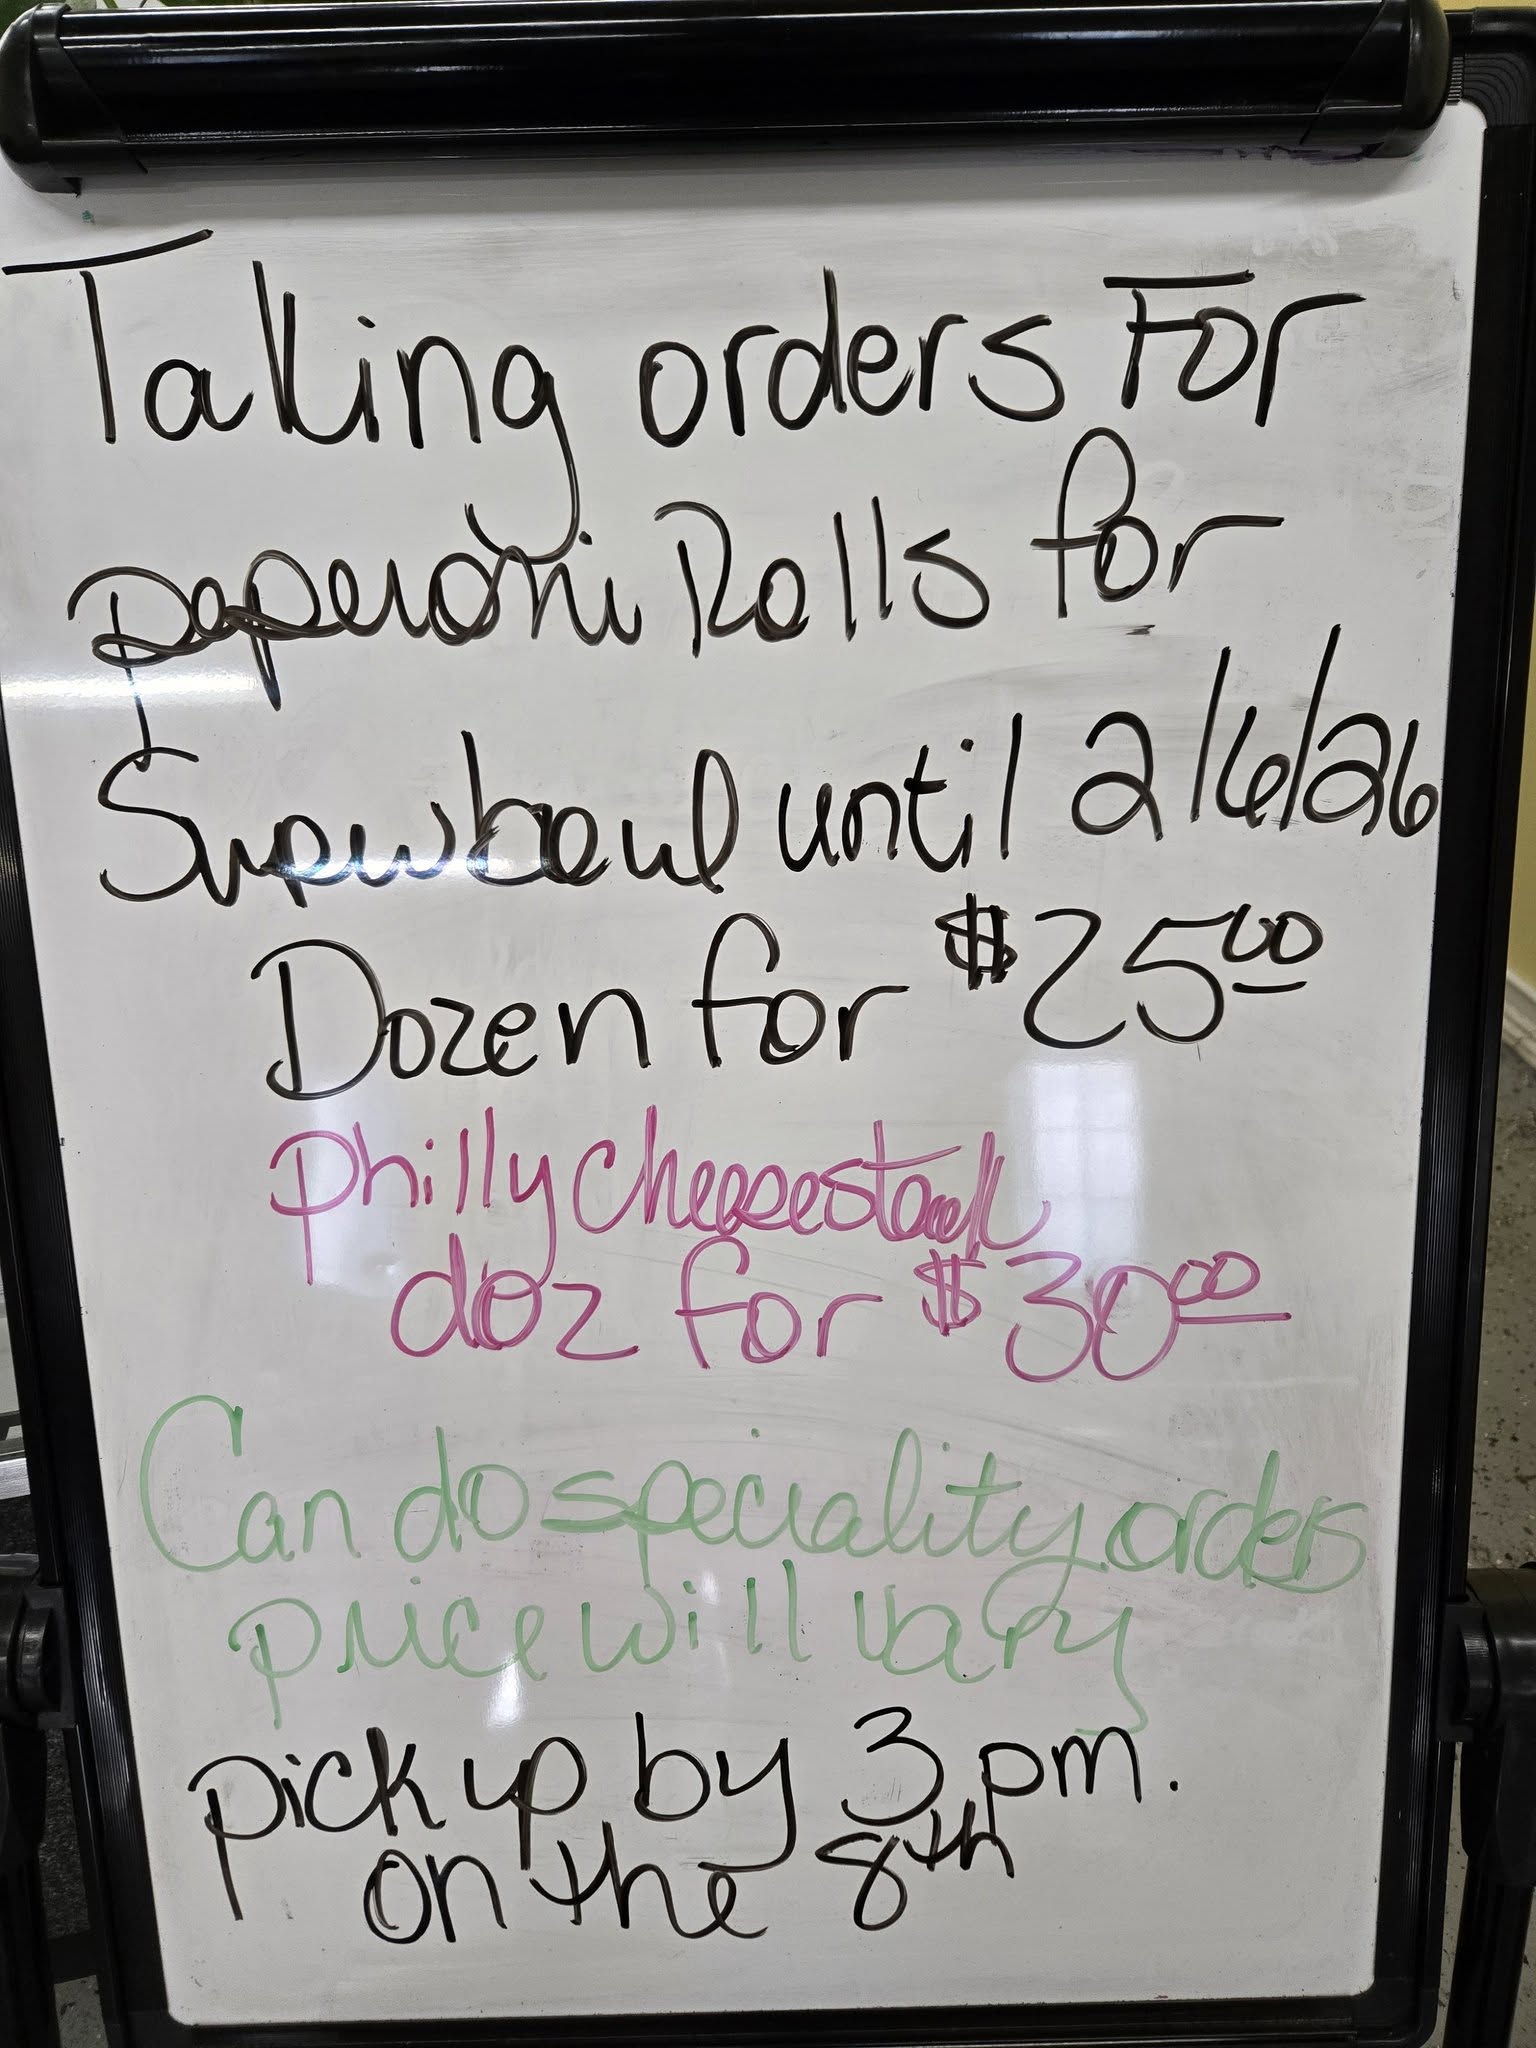 Taking orders For
peperoni Rolls for
Superbowl until 2/6/26
Dozen for $25.00
Philly cheesesteak
doz for $30.00
Can do speciality orders
price will vary
pick up by 3 pm.
on the 8th